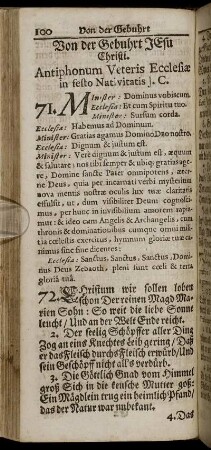 100 Von der Gebuhrt
Von der Gebuhrt JEsu
Christi.
Antiphonum Veteris Ecclesiæ
in festo Nativitatis J. C.
71. Minister: Dominus vobiscum.
Ecclesia: Et cum Spiritu tuo.
Minister: Sursum corda.
Ecclesia: Habemus ad Dominum.
Minister: Gratias agamus Domino Deo nostro.
Ecclesia: Dignum & justum est.
Minister: Verè dignum & justum est, æquum
& salutare: nos tibi semper & ubiq; gratias age-
re, Domine sancte Pater omnipotens, æter-
ne Deus, quia per incarnati verbi mysterium
nova mentis nostræ oculis lux tuæ claritatis
effulsit, ut, dum visibiliter Deum cognosci-
mus, per hunc in invisibilium amorem rapia-
mur; & ideo cum Angelis & Archangelis, cum
thronis & dominationibus cumque omni
militia cœlestis exercitus, hymnum gloriæ tuæ ca-
nimus sine fine dicentes:
Ecclesia: Sanctus, Sanctus, Sanctus, Domi-
nus Deus Zebaoth, pleni sunt cœli & terra
gloriâ tuâ.
72. CHristum wir sollen loben
schon Der reinen Magd Ma-
rien Sohn: So weit die liebe Sonne
leucht/ Und an der Welt Ende reicht.
2. Der seelig Schöpffer aller Ding
Zog an eins Knechtes Leib gering/ Daß
er das Fleisch durchs Fleisch erwürb/ Und
sein Geschöpff nicht als verdürb.
3. Die Göttlich Gnad vom Himmel
groß Sich in die keusche Mutter goß:
Ein Mägdlein trug ein heimlich Pfand/
das der Natur war unbekant.
4. Das